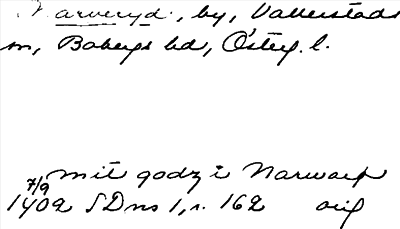 Narveryd, by, Vallerstads
sn, Bobergs hd, Österg. l.
mit godz i Narwaryt
7/9
1402 SD ns 1, s. 162 orig